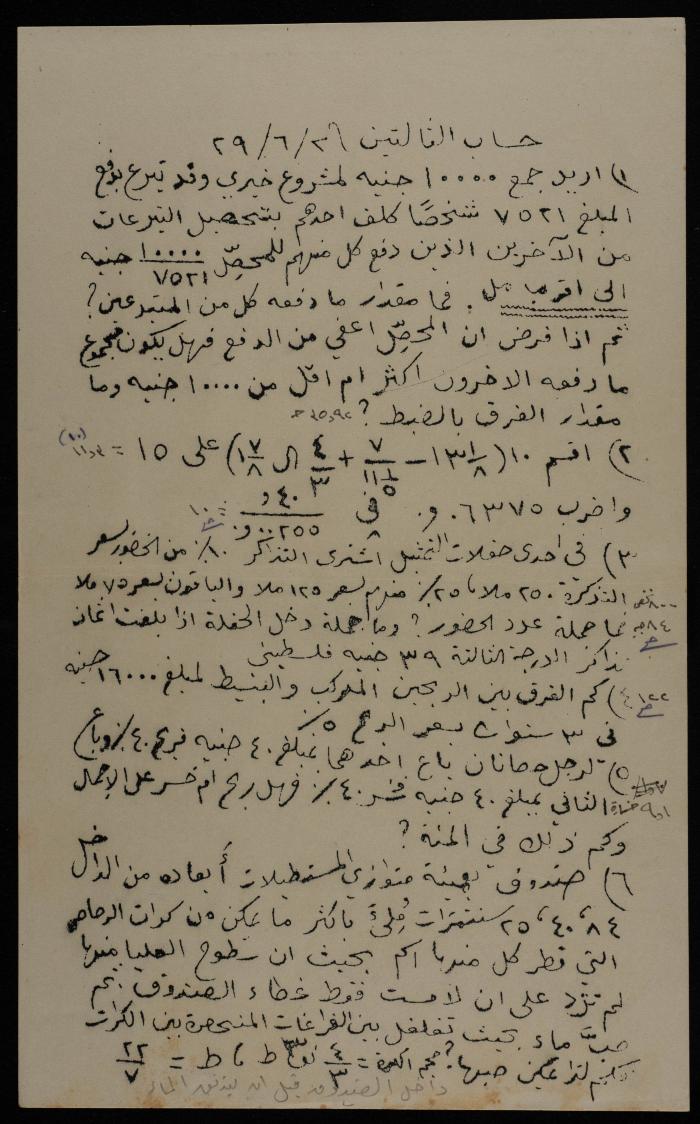 حساب الثالثين ٢٩/٦/٣٦
١) اريد جمع ١٠٠٠٠ جنيه لمشروع خيري وقد تبرع بدفع
المبلغ ٧٥٢١ شخصًا كلف احدهم بتحصيل التبرعات
من الآخرين الذين دفع كل منهم للمحصّل ١٠٠٠٠/٧٥٢١ جنيه
الى اقرب مل . فما مقدار ما دفعه كل من المتبرعين ؟
ثم اذا فرض ان المحصّل اعفي من الدفع فهل يكون مجموع
ما دفعه الاخرون اكثر ام اقل من ١٠٠٠٠ جنيه وما
مقدار الفرق بالضبط ؟
٢) اقسم ١٠ (١/٨ ١٣ − ٧/(١/٥ ١١) + ٤/٣ ال ٧/٨ ١) على ١٥ =
واضرب ٦٣٧٥٠و٠ في ٤٠و/٠٠٢٥٥و٠ = ١٠٠
٣) في احدى حفلات التمثيل اشترى التذاكر ١٠٪ من الحضور بسعر
التذكرة ٢٥٠ ملا، ٢٥٪ منهم بسعر ١٢٥ ملا والباقون بسعر ٧٥ ملا
فما جملة عدد الحضور ؟ وما جملة دخل الحفلة اذا بلغت اثمان
تذاكر الدرجة الثالثة ٣٩ جنيه فلسطيني
٤) كم الفرق بين الربحين المركب والبسيط لمبلغ ١٦٠٠٠ جنيه
في ٣ سنوات بسعر الربح ٥٪
٥) لرجل حصانان باع احدهما بمبلغ ٤٠ جنيه فربح ٤٠٪ وباع
الثاني بمبلغ ٤٠ جنيه فخسر ٤٠٪ فهل ربح ام خسر على الاجمال
وكم ذلك في المئة ؟
٦) صندوق بهيئة متوازي المستطيلات أبعاده من الداخل
٨٤، ٤٠، ٢٥ سنتمترات مُلِئَ باكثر ما يمكن من كرات الرصاص
التي قطر كل منها ١سم بحيث ان سطوح العليا منها
لم تزد على ان لامست فقط غطاء الصندوق . ثم
صبّ ماء بحيث تغلغل بين الفراغات المنحصرة بين الكرات
فكم لترا يمكن صبها ؟ حجم الكرة = ٤/٣ نق٣ ط ، ط = ٢٢/٧
داخل الصندوق قبل ان يتدفق الماء